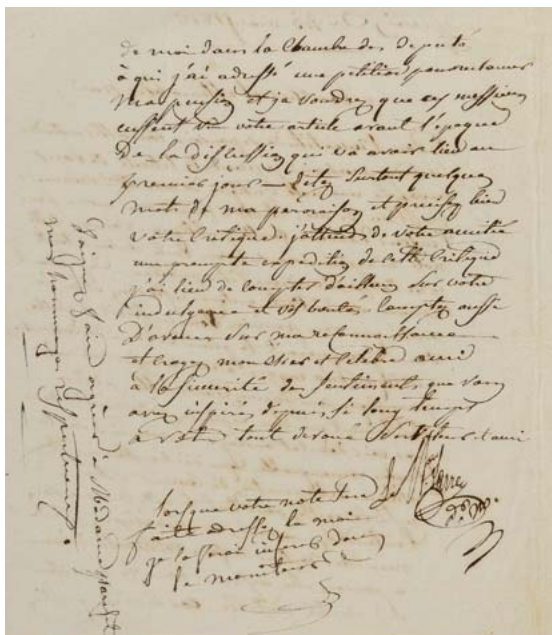 de moi dans la Chambre des deputé
à qui j'ai adressé une petition pour reclamer
ma pension et je voudrez que ces messieurs
eussent vu votre article avant l'époque
De la discussion qui va avoir lieu au
premier jour — Dites surtout quelque
mots de ma peroraison et précisez bien
votre critique. j'attends de votre amitié
une prompte expedition de cette critique
j'ai lieu de compter d'ailleurs sur votre
indulgence et vos bontés. Comptez aussi
D'avance sur ma reconnaissance
et croyez mon cher et celebre ami
à la sincerité des sentiments que vous
avez inspirés depuis si long temps
à votre tout devoué serviteur et ami
lorsque votre note sera
faite adressez la moi
je la ferai inserer dans
le moniteur
Daignez faire agréer à Madame
mes hommages respectueux.